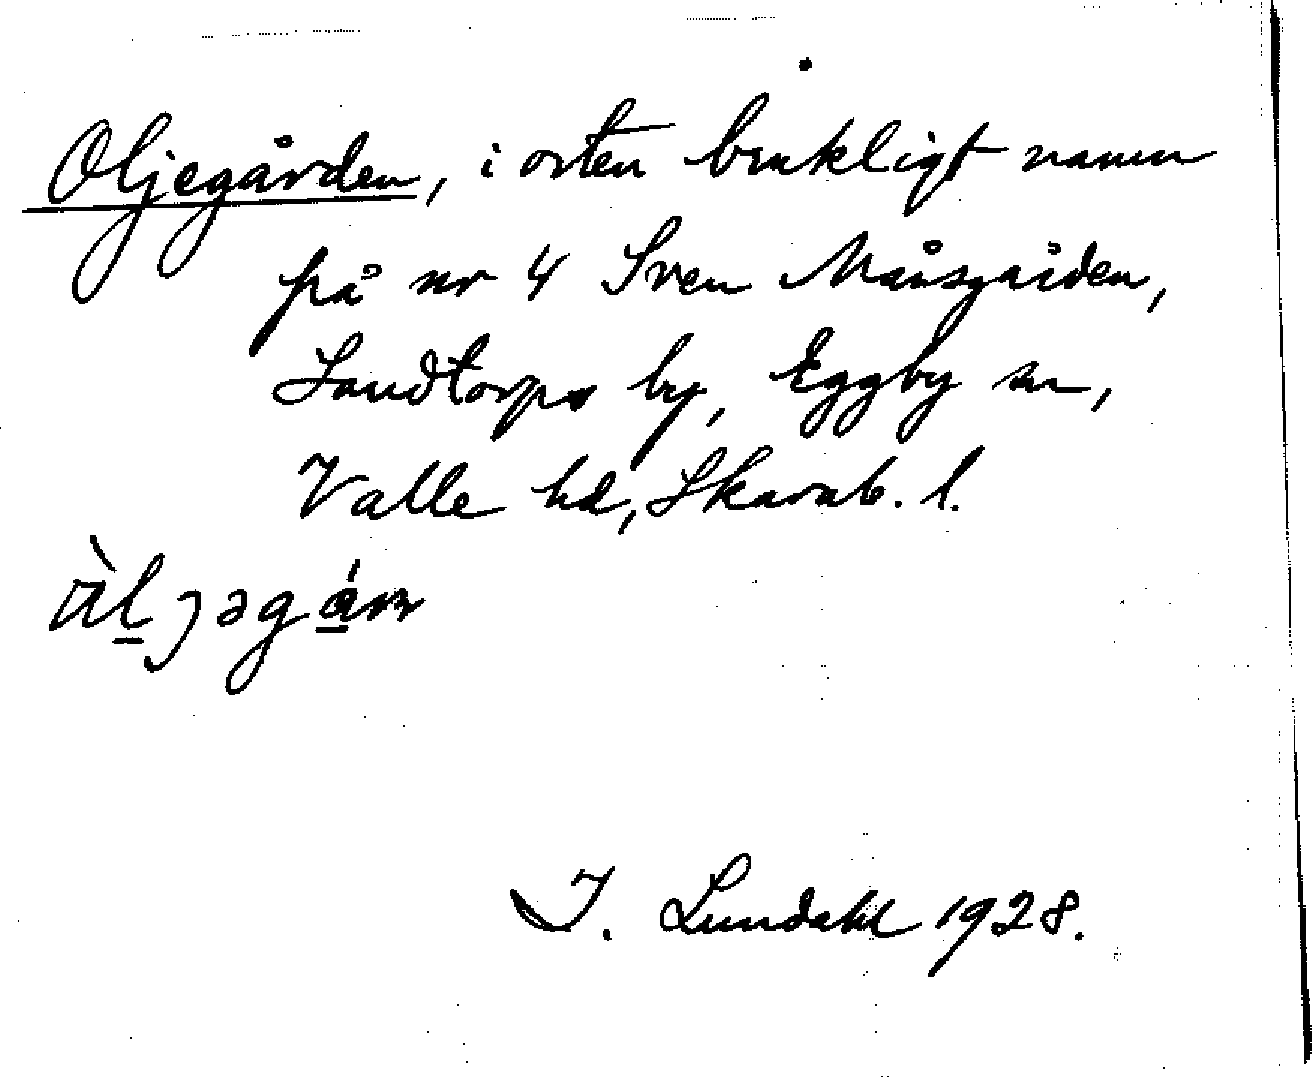 Oljegården, i orten brukligt namn
på nr 4 Sven Månsgården,
Sandtorps by, Eggby sn,
Valle hd, Skarab. l.
I. Lundahl 1928.